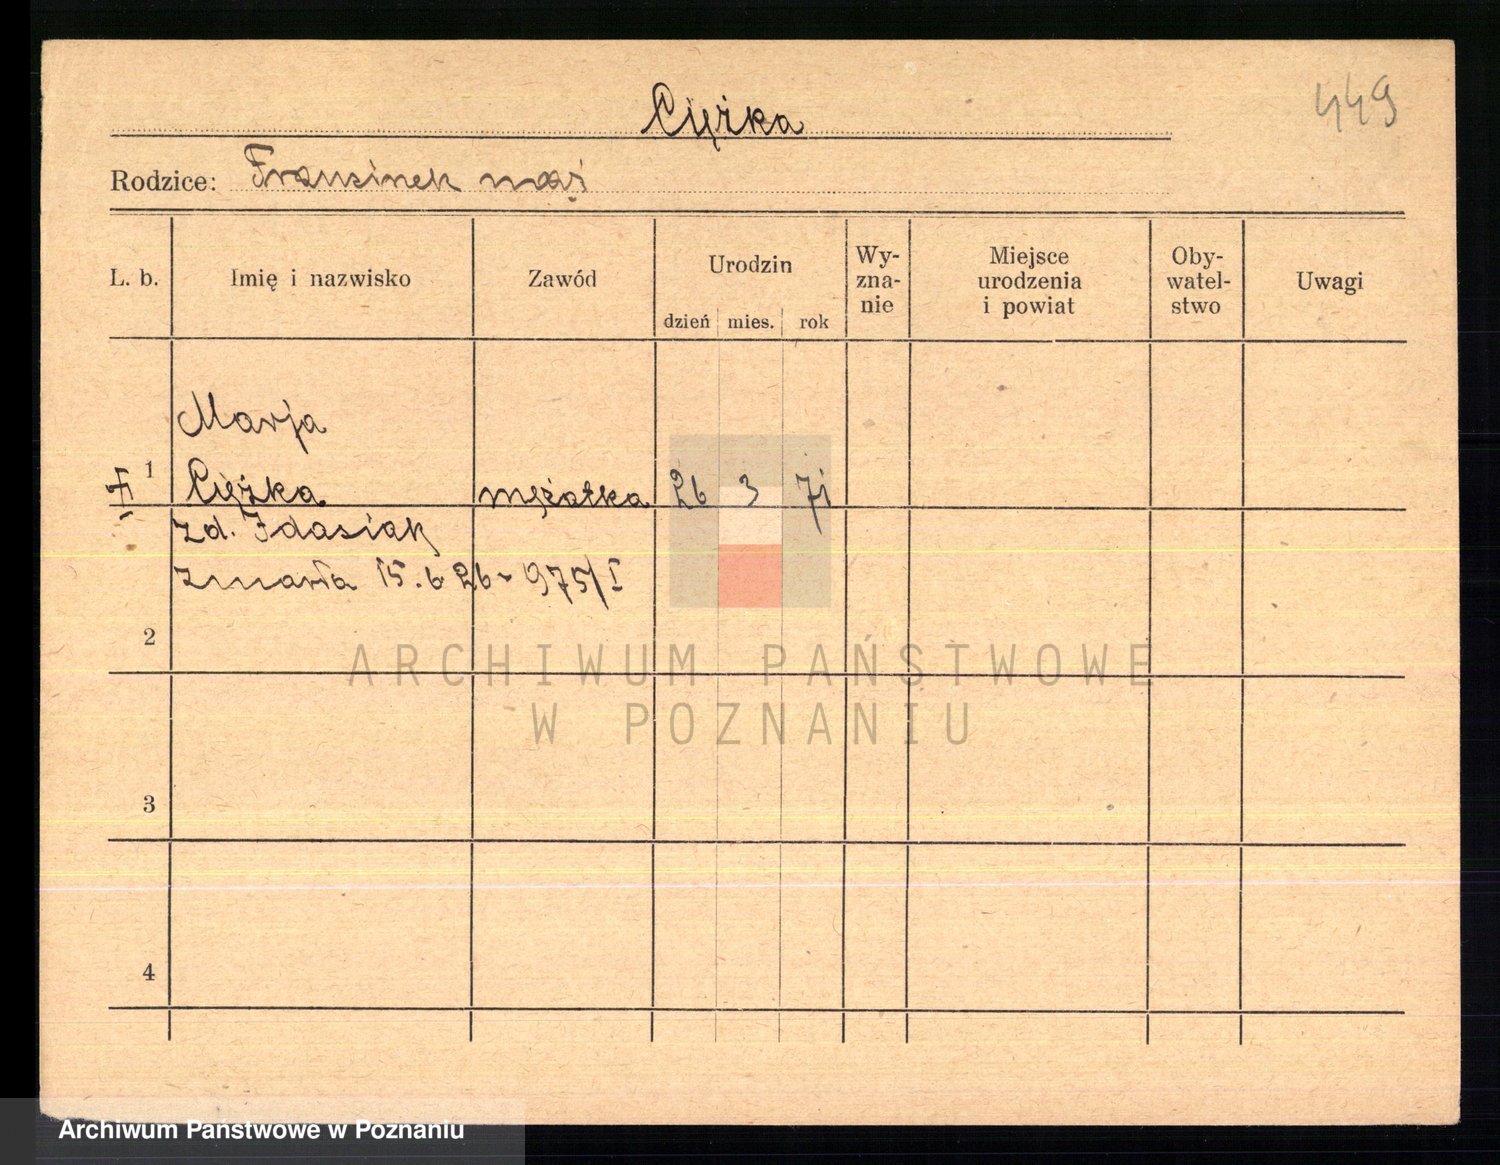 449
Ciężka
Rodzice: Franciszek mąż
L. b. Imię i nazwisko Zawód Urodzin Wy-zna-nie Miejsce urodzenia i powiat Oby-watel-stwo Uwagi
dzień mies. rok
Marja
1 Ciężka mężatka 26 3 71
zd. Idasiak
zmarła 15.6 26 - 975/I
2
3
4
ARCHIWUM PAŃSTWOWE
W POZNANIU
Archiwum Państwowe w Poznaniu